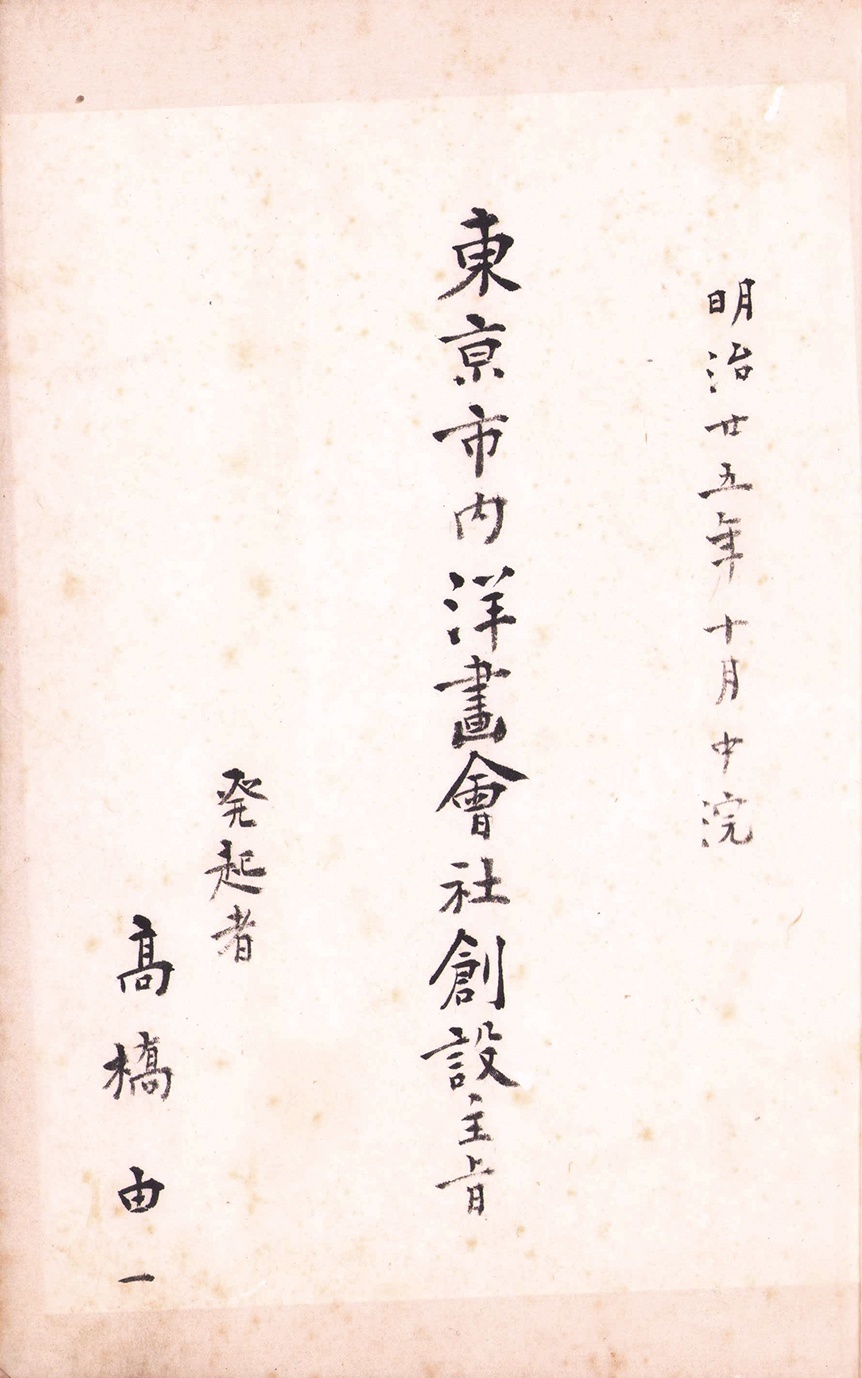 明治廿五年十月中浣
東京市内洋畫會社創設主旨
発起者
髙橋由一